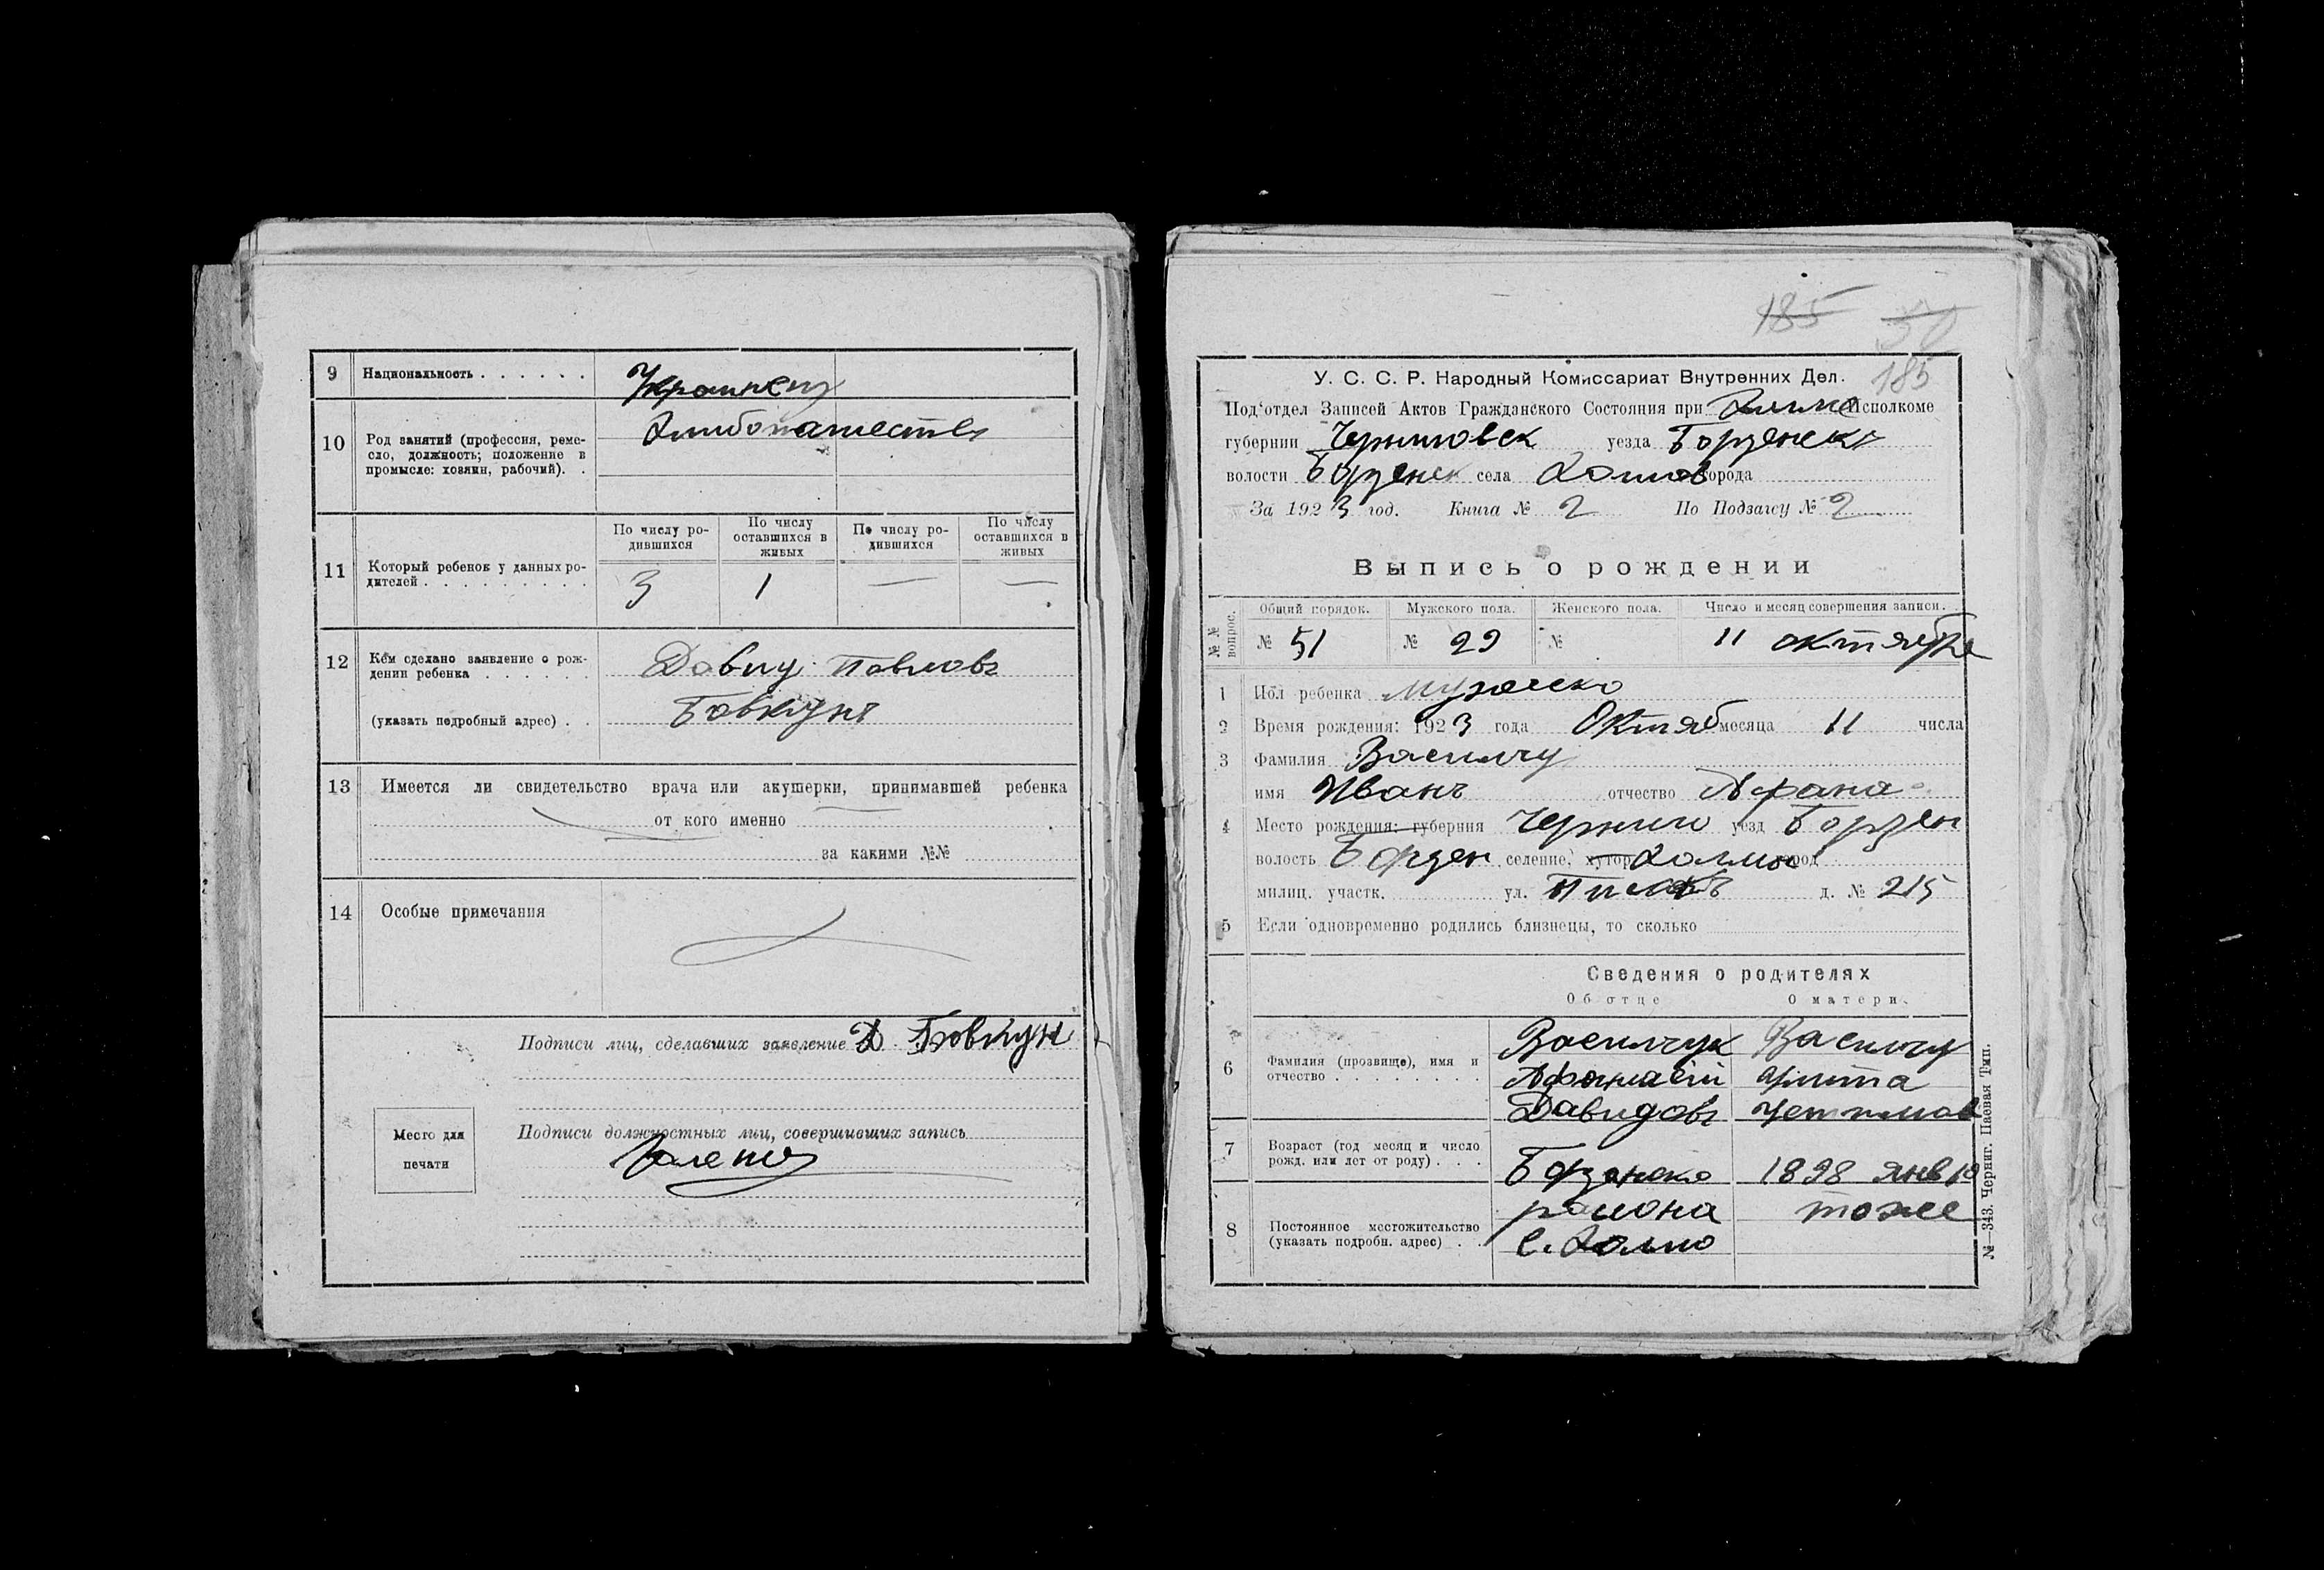 9 Национальность . . . . . . Украинец
10 Род занятий (профессия, реме-
сло, должность; положение в
промысле: хозяин, рабочий). .
11 Который ребенок у данных ро-
дителей . . . . . . . . .
По числу ро-
дившихся
По числу
оставшихся в
живых
По числу ро-
дившихся
По числу
оставшихся в
живых
3 1 — —
12 Кем сделано заявление о рож-
дении ребенка . . . . . .
(указать подробный адрес) . .
Давид Павловъ
Бовкунъ
13 Имеется ли свидетельство врача или акушерки, принимавшей ребенка
от кого именно
за какими №№
14 Особые примечания
Подписи лиц, сделавших заявление Д Бовкун
Подписи должностных лиц, совершивших запись
Место для
печати
185 50
185
У. С. С. Р. Народный Комиссариат Внутренних Дел.
Под'отдел Записей Актов Гражданского Состояния при Исполкоме
губернии Черниговск уезда Борзенск
волости Борзенск села города
За 1923 год. Книга № 2 По Подзагсу № 2
Выпись о рождении
№ № вопрос.
Общий порядок. Мужского пола. Женского пола. Число и месяц совершения записи.
№ 51 № 29 № 11 октября
1 Пол ребенка мужеско
2 Время рождения: 1923 года Октяб месяца 11 числа
3 Фамилия Василчу
имя Иванъ отчество Афана
4 Место рождения: губерния Черниго уезд Борзен
волость Борзен селение, хутор Холмы город
милиц. участк. ул. д. № 215
5 Если одновременно родились близнецы, то сколько
Сведения о родителях
Об отце О матери.
6 Фамилия (прозвище), имя и
отчество . . . . . . . .
Василчук Василчу
Афанасий
Давидовъ
7 Возраст (год месяц и число
рожд. или лет от роду) . . .
Борзенско 1898 янв 10
района тоже
8 Постоянное местожительство
(указать подробн. адрес) . .
с. Холмо
№—343. Черниг. Паевая Тип.